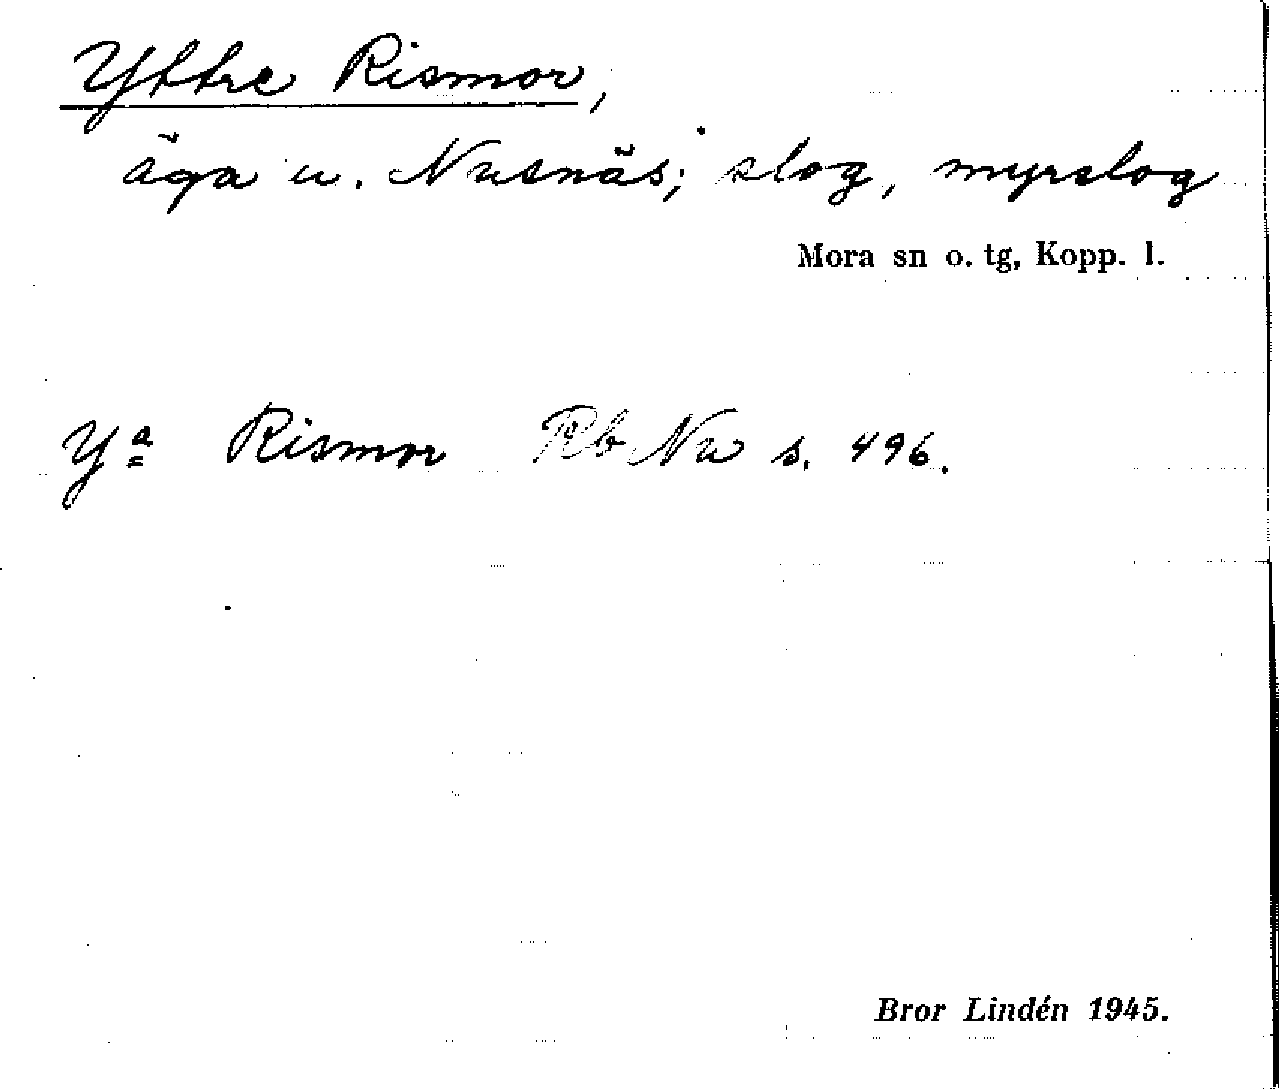 Yttre Rismor,
äga u. Nusnäs; slog, myrslog
Mora sn o. tg, Kopp. l.
Yª Rismor Rb Nu s. 496.
Bror Lindén 1945.